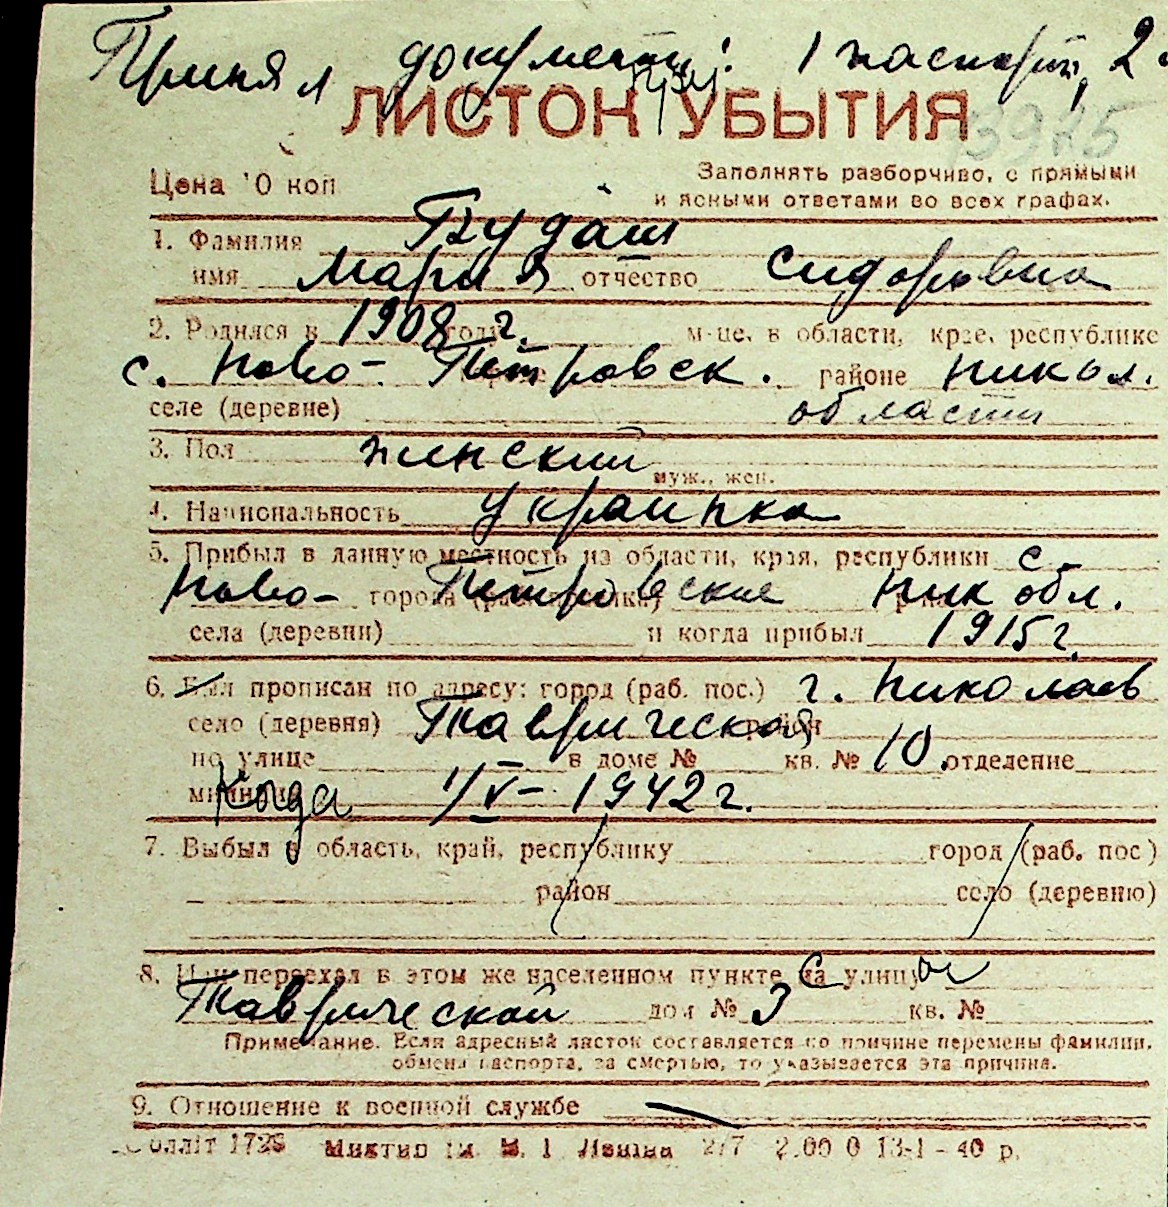 Принял документы: 1 паспорт, 2
ЛИСТОК УБЫТИЯ
3925
Цена 10 коп
Заполнять разборчиво, с прямыми
и ясными ответами во всех графах.
1. Фамилия Будаш
имя Мария отчество Сидоровна
2. Родился в 1908 году г. м-це, в области, крае, республике
с. Ново-Петровск. районе Никол.
селе (деревне) области
3. Пол женский
муж., жен.
4. Национальность украинка
5. Прибыл в данную местность из области, края, республики с.
Ново-Петровское города Ник обл.
села (деревни) и когда прибыл 1915 г.
6. Был прописан по адресу: город (раб. пос.) г. Николаев
село (деревня) Таврическая район
по улице в доме № кв. № 10 отделение
Когда 1/V - 1942 г.
7. Выбыл в область, край, республику город (раб. пос)
район село (деревню)
8. Или переехал в этом же населенном пункте с улицы
Таврической дом № 3 кв. №
Примечание. Если адресный листок составляется по причине перемены фамилии,
обмена паспорта, за смертью, то указывается эта причина.
9. Отношение к военной службе —
Облліт 1728 Миктип ім. В. І. Леніна 217 2.00 0 13-1 - 40 р.